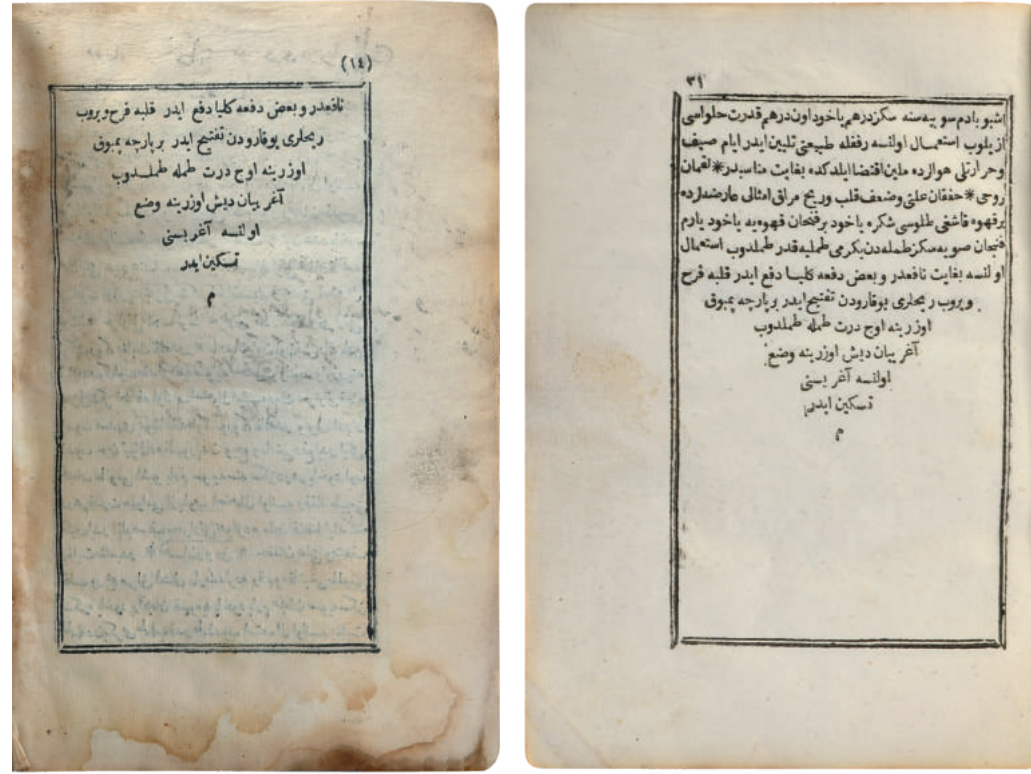 (١٤)
نافعدر و بعض دفعه كليا دفع ايدر قلبه فرح ويروب
ريحلرى يوقارودن تفتيح ايدر بر پارچه پمبوق
اوزرينه اوچ درت طمله طملدوب
آغريان ديش اوزرينه وضع
اولنسه آغريسنى
تسكين ايدر
م
٣١
اشبو بادم سوبيه سنه سكز درهم ياخود اون درهم قدرت حلواسى
ازيلوب استعمال اولنسه رفقله طبيعتى تليين ايدر ايام صيف
و حرارتلى هوالرده ملين اقتضا ايلدكده بغايت مناسبدر * لقمان
روحى * خفقان علتى وضعف قلب وريح مراق امثالى عارضه لرده
بر قهوه قاشقى طلوسى شكره ياخود بر فنجان قهوه يه ياخود يارم
فنجان صويه سكز طمله دن يكرمى طمليه قدر طملدوب استعمال
اولنسه بغايت نافعدر و بعض دفعه كليا دفع ايدر قلبه فرح
ويروب ريحلرى يوقارودن تفتيح ايدر بر پارچه پمبوق
اوزرينه اوچ درت طمله طملدوب
آغريان ديش اوزرينه وضع
اولنسه آغريسنى
تسكين ايدر
م